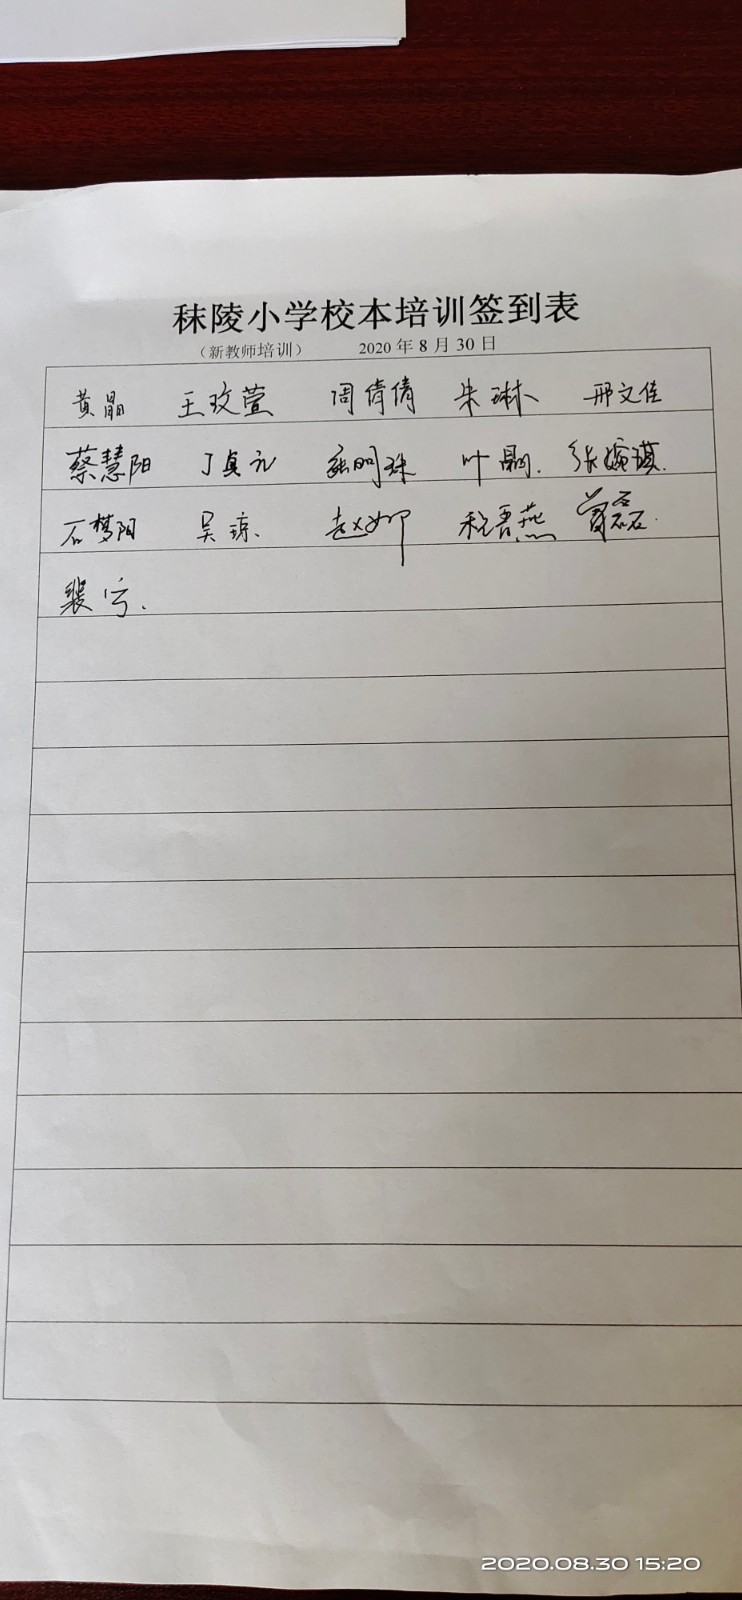 秣陵小学校本培训签到表
（新教师培训） 2020 年 8 月 30 日
黄晶 王玟萱 周倩倩 朱琳 邢文佳
蔡慧阳 丁真元 明珠 叶 张婉琪
石梦阳 吴琼 赵娜 程君燕 曾磊
裴宁
2020.08.30 15:20